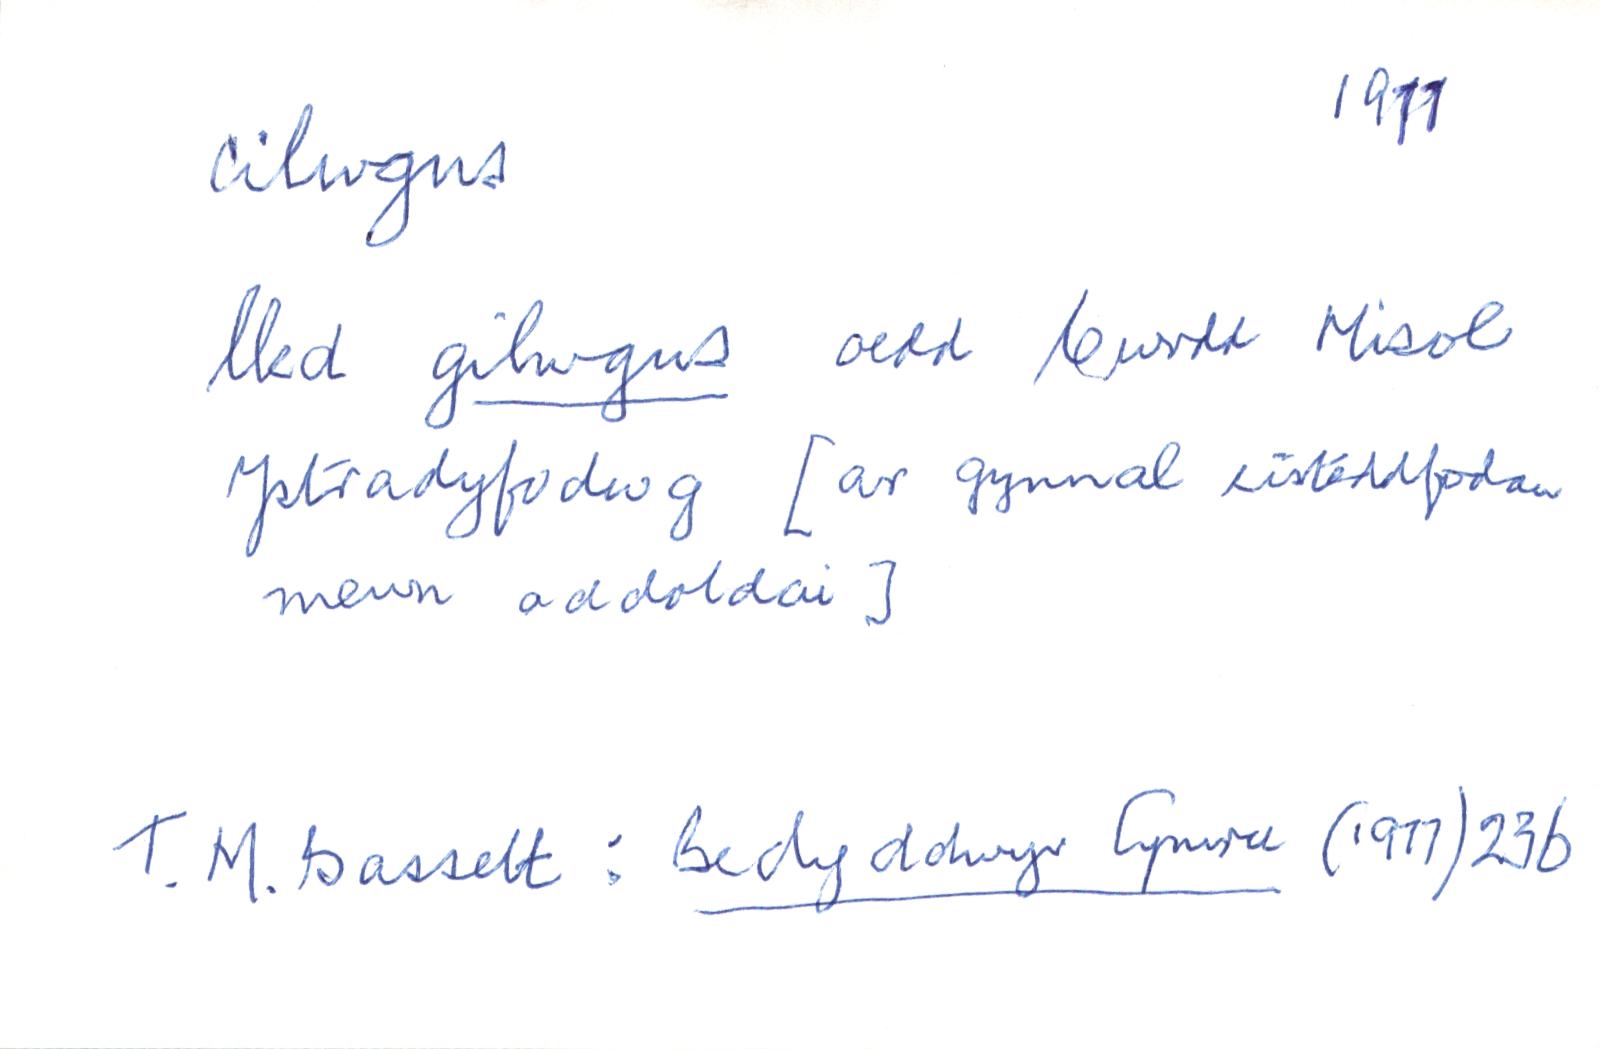 1977
cilwgus
lled gilwgus oedd Cwrdd Misol
Ystradyfodwg [ar gynnal eisteddfodau
mewn addoldai]
T. M. Bassett : Bedyddwyr Cymru (1977) 236